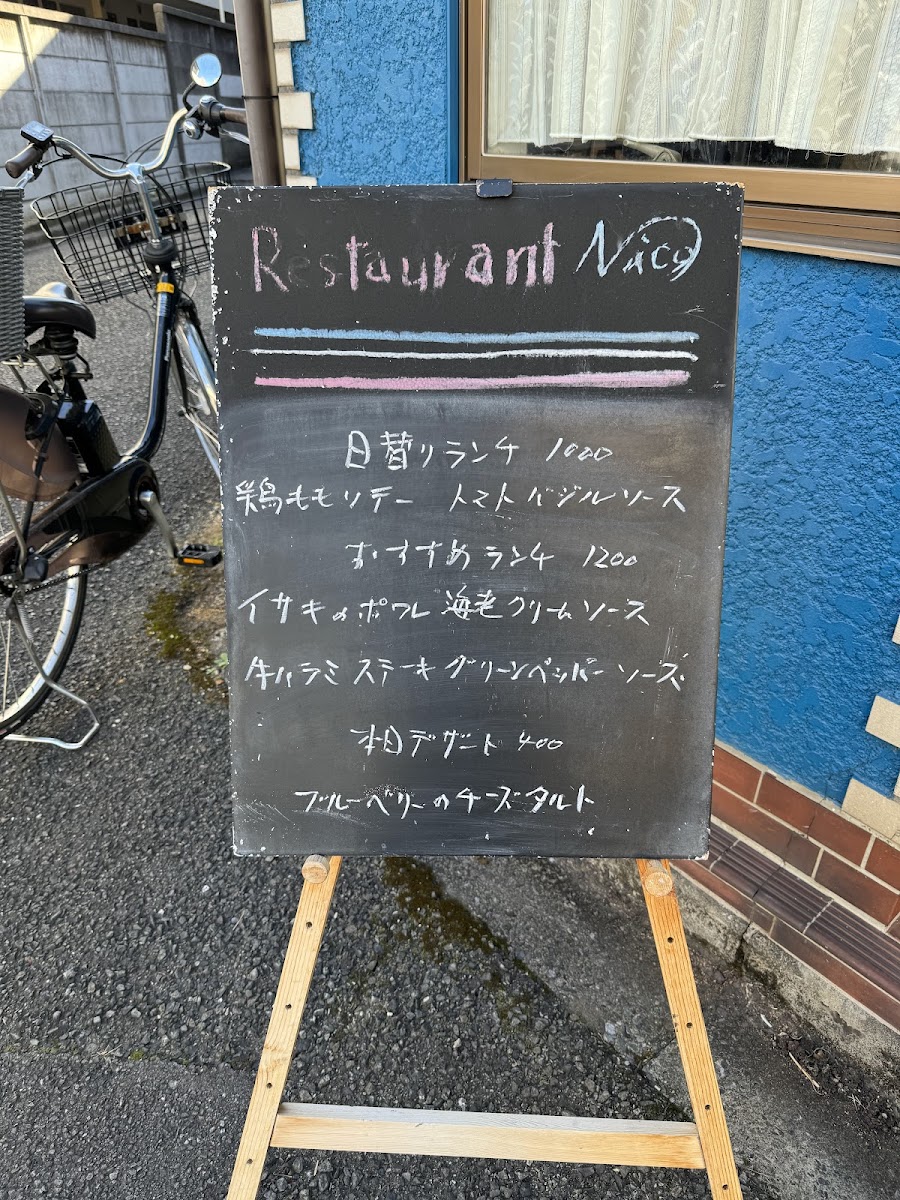 Restaurant Nico
日替りランチ 1000
鶏ももソテー トマトバジルソース
おすすめランチ 1200
イサキのポワレ 海老クリームソース
牛ハラミステーキグリーンペッパーソース
本日デザート 400
ブルーベリーのチーズタルト